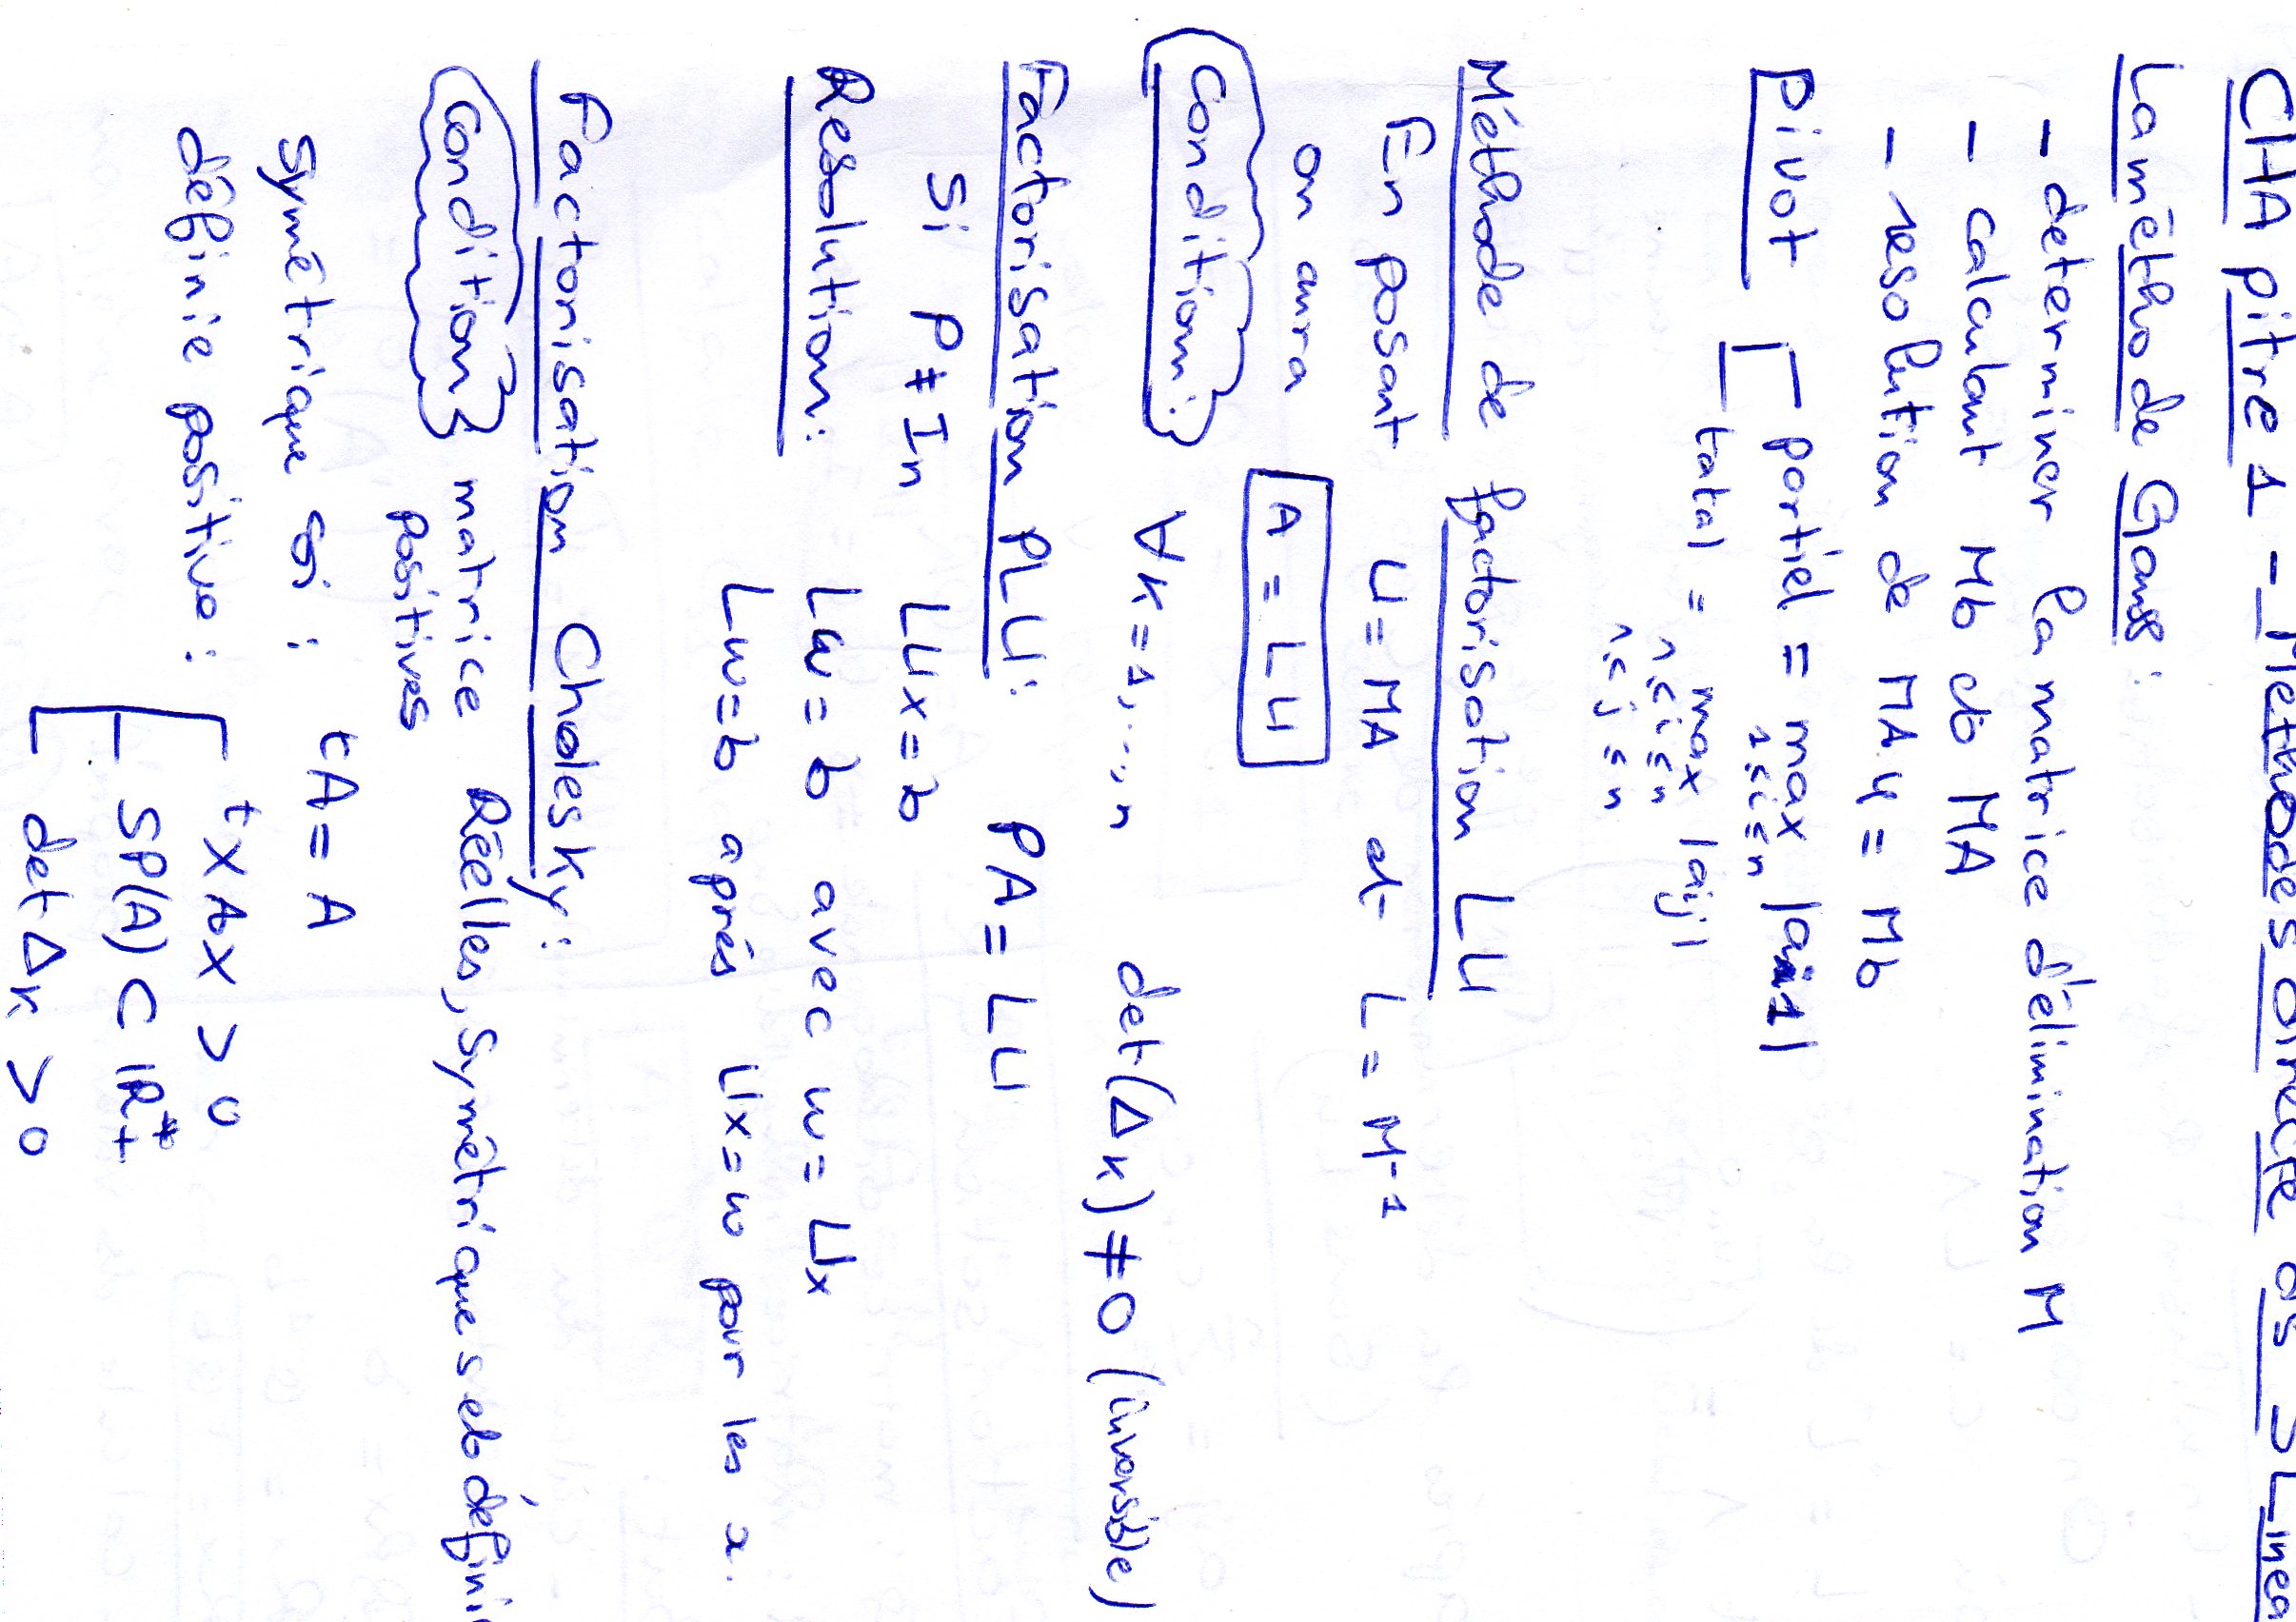 CHApitre 1 - Méthodes directe ds SLinea
La méthode Gauss :
- determiner la matrice d'élimination M
- calculant Mb et MA
- resolution de MA u = Mb
pivot partiel = max |ai1|
1≤i≤n
tatal = max |aij|
1≤i≤n
1≤j≤n
Méthode de factorisation LU
En posant U = MA et L = M⁻¹
on aura A = LU
Condition : ∀K=1,...,n det(ΔK) ≠ 0 (inversible)
Factorisation PLU : PA = LU
Si P ≠ In LUx = b
Resolution : Lw = b avec w = Ux
Lw=b aprés Ux=w pour les x.
Factorisation Cholesky :
Condition matrice Réelles, Symétriques et défini
positives
symétrique si : ᵗA = A
définie positive : ᵗXAX > 0
SP(A) ⊂ IR*+
det ΔK > 0